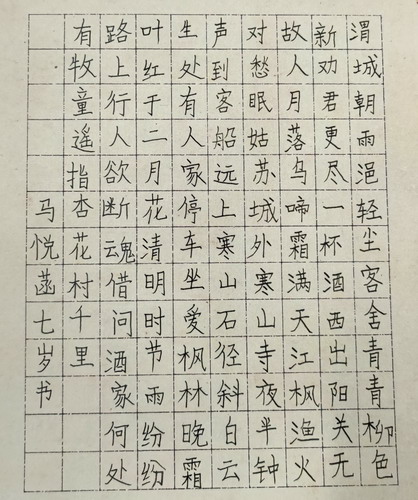 渭城朝雨浥轻尘客舍青青柳色
新劝君更尽一杯酒西出阳关无
故人月落乌啼霜满天江枫渔火
对愁眠姑苏城外寒山寺夜半钟
声到客船远上寒山石径斜白云
生处有人家停车坐爱枫林晚霜
叶红于二月花清明时节雨纷纷
路上行人欲断魂借问酒家何处
有牧童遥指杏花村千里
马悦菡七岁书